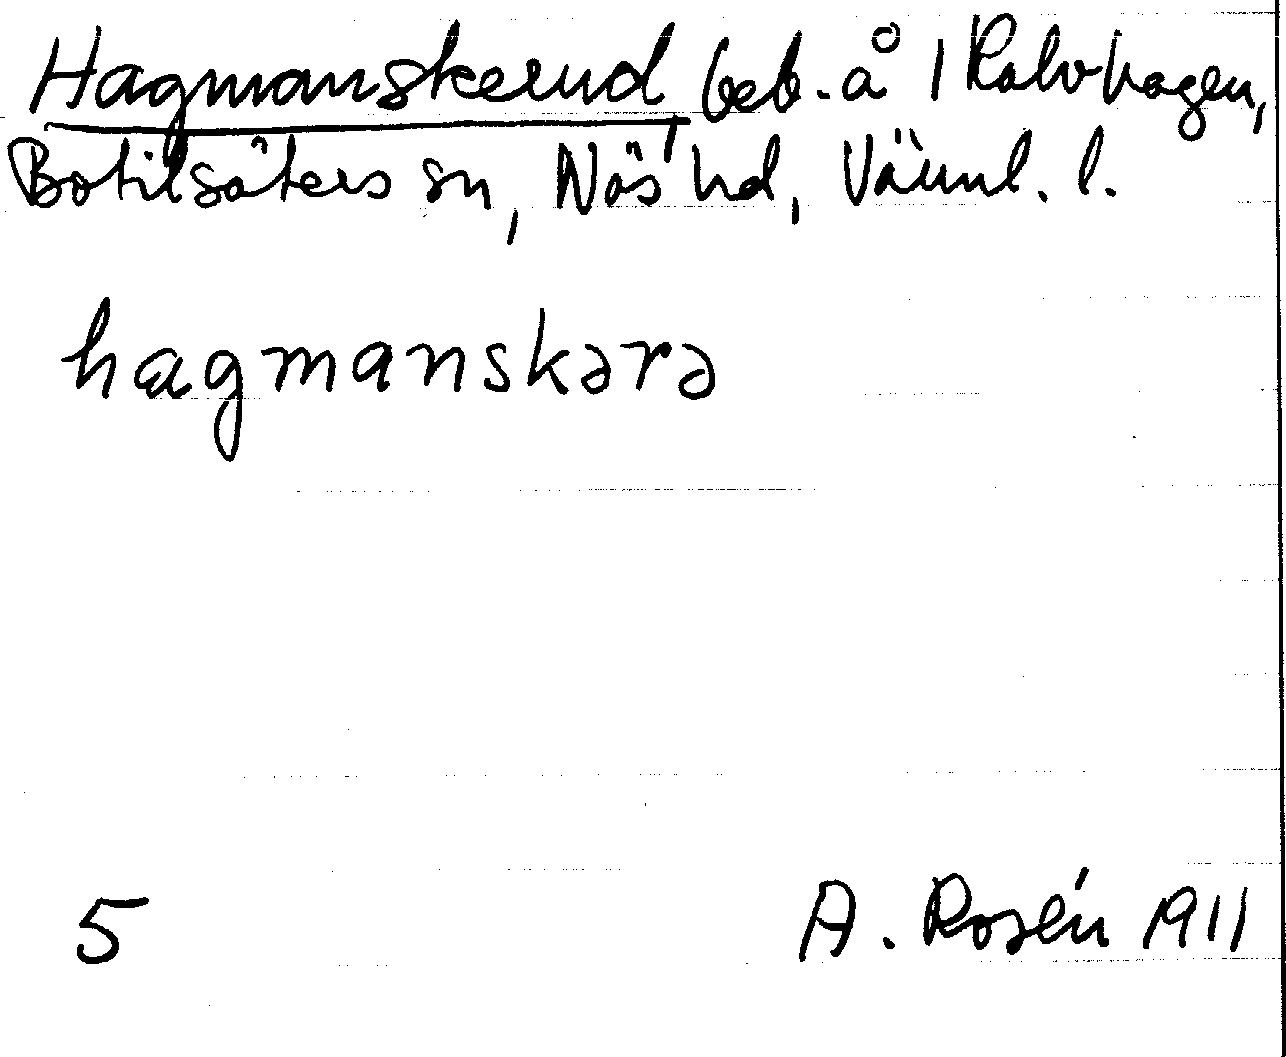 Hagmanskerud, beb. å 1 Kalvhagen,
Botilsäters sn, Näs hd, Värml. l.
hagmanskərə
5
A. Rosén 1911